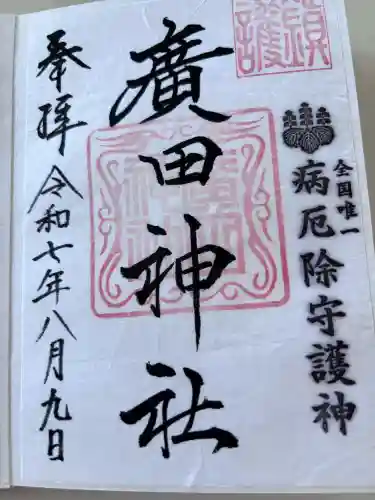 鎮護
全国唯一
病厄除守護神
廣田神社
奉拝
令和七年八月九日